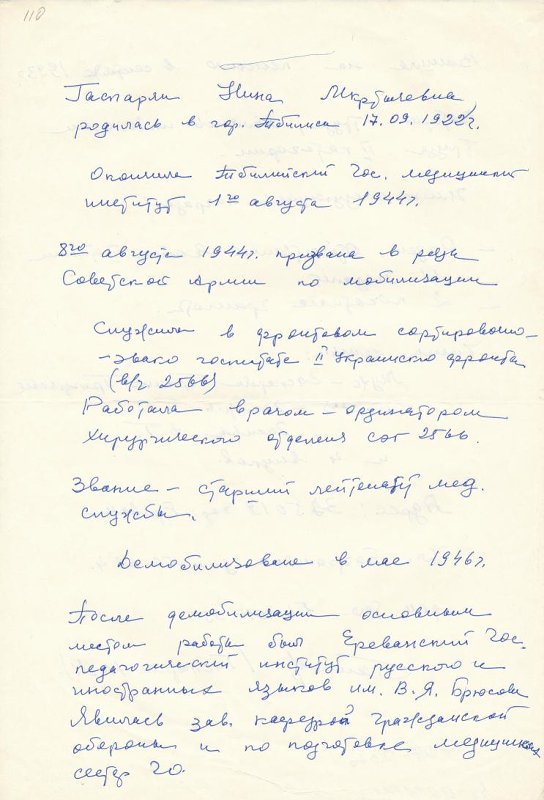 110
Гаспарян Нина Мкртычевна
родилась в гор. Тбилиси 17.09.1922г.
Окончила Тбилисский Гос. медицинский
институт 1го августа 1944г.
8го августа 1944г. призвана в ряды
Советской Армии по мобилизации
Служила в фронтовом сортировочно-
-эвако госпитале II Украинского фронта
(в/ч 2566)
Работала врачом – ординатором
хирургического отделения СЭГ 2566.
Звание – старший лейтенант мед.
службы.
Демобилизована в мае 1946г.
После демобилизации основным
местом работы был Ереванский Гос.
педагогический институт русского и
иностранных языков им. В.Я. Брюсова
Являлась зав. кафедрой Гражданской
обороны и по подготовке медицинских
сестер ГО.